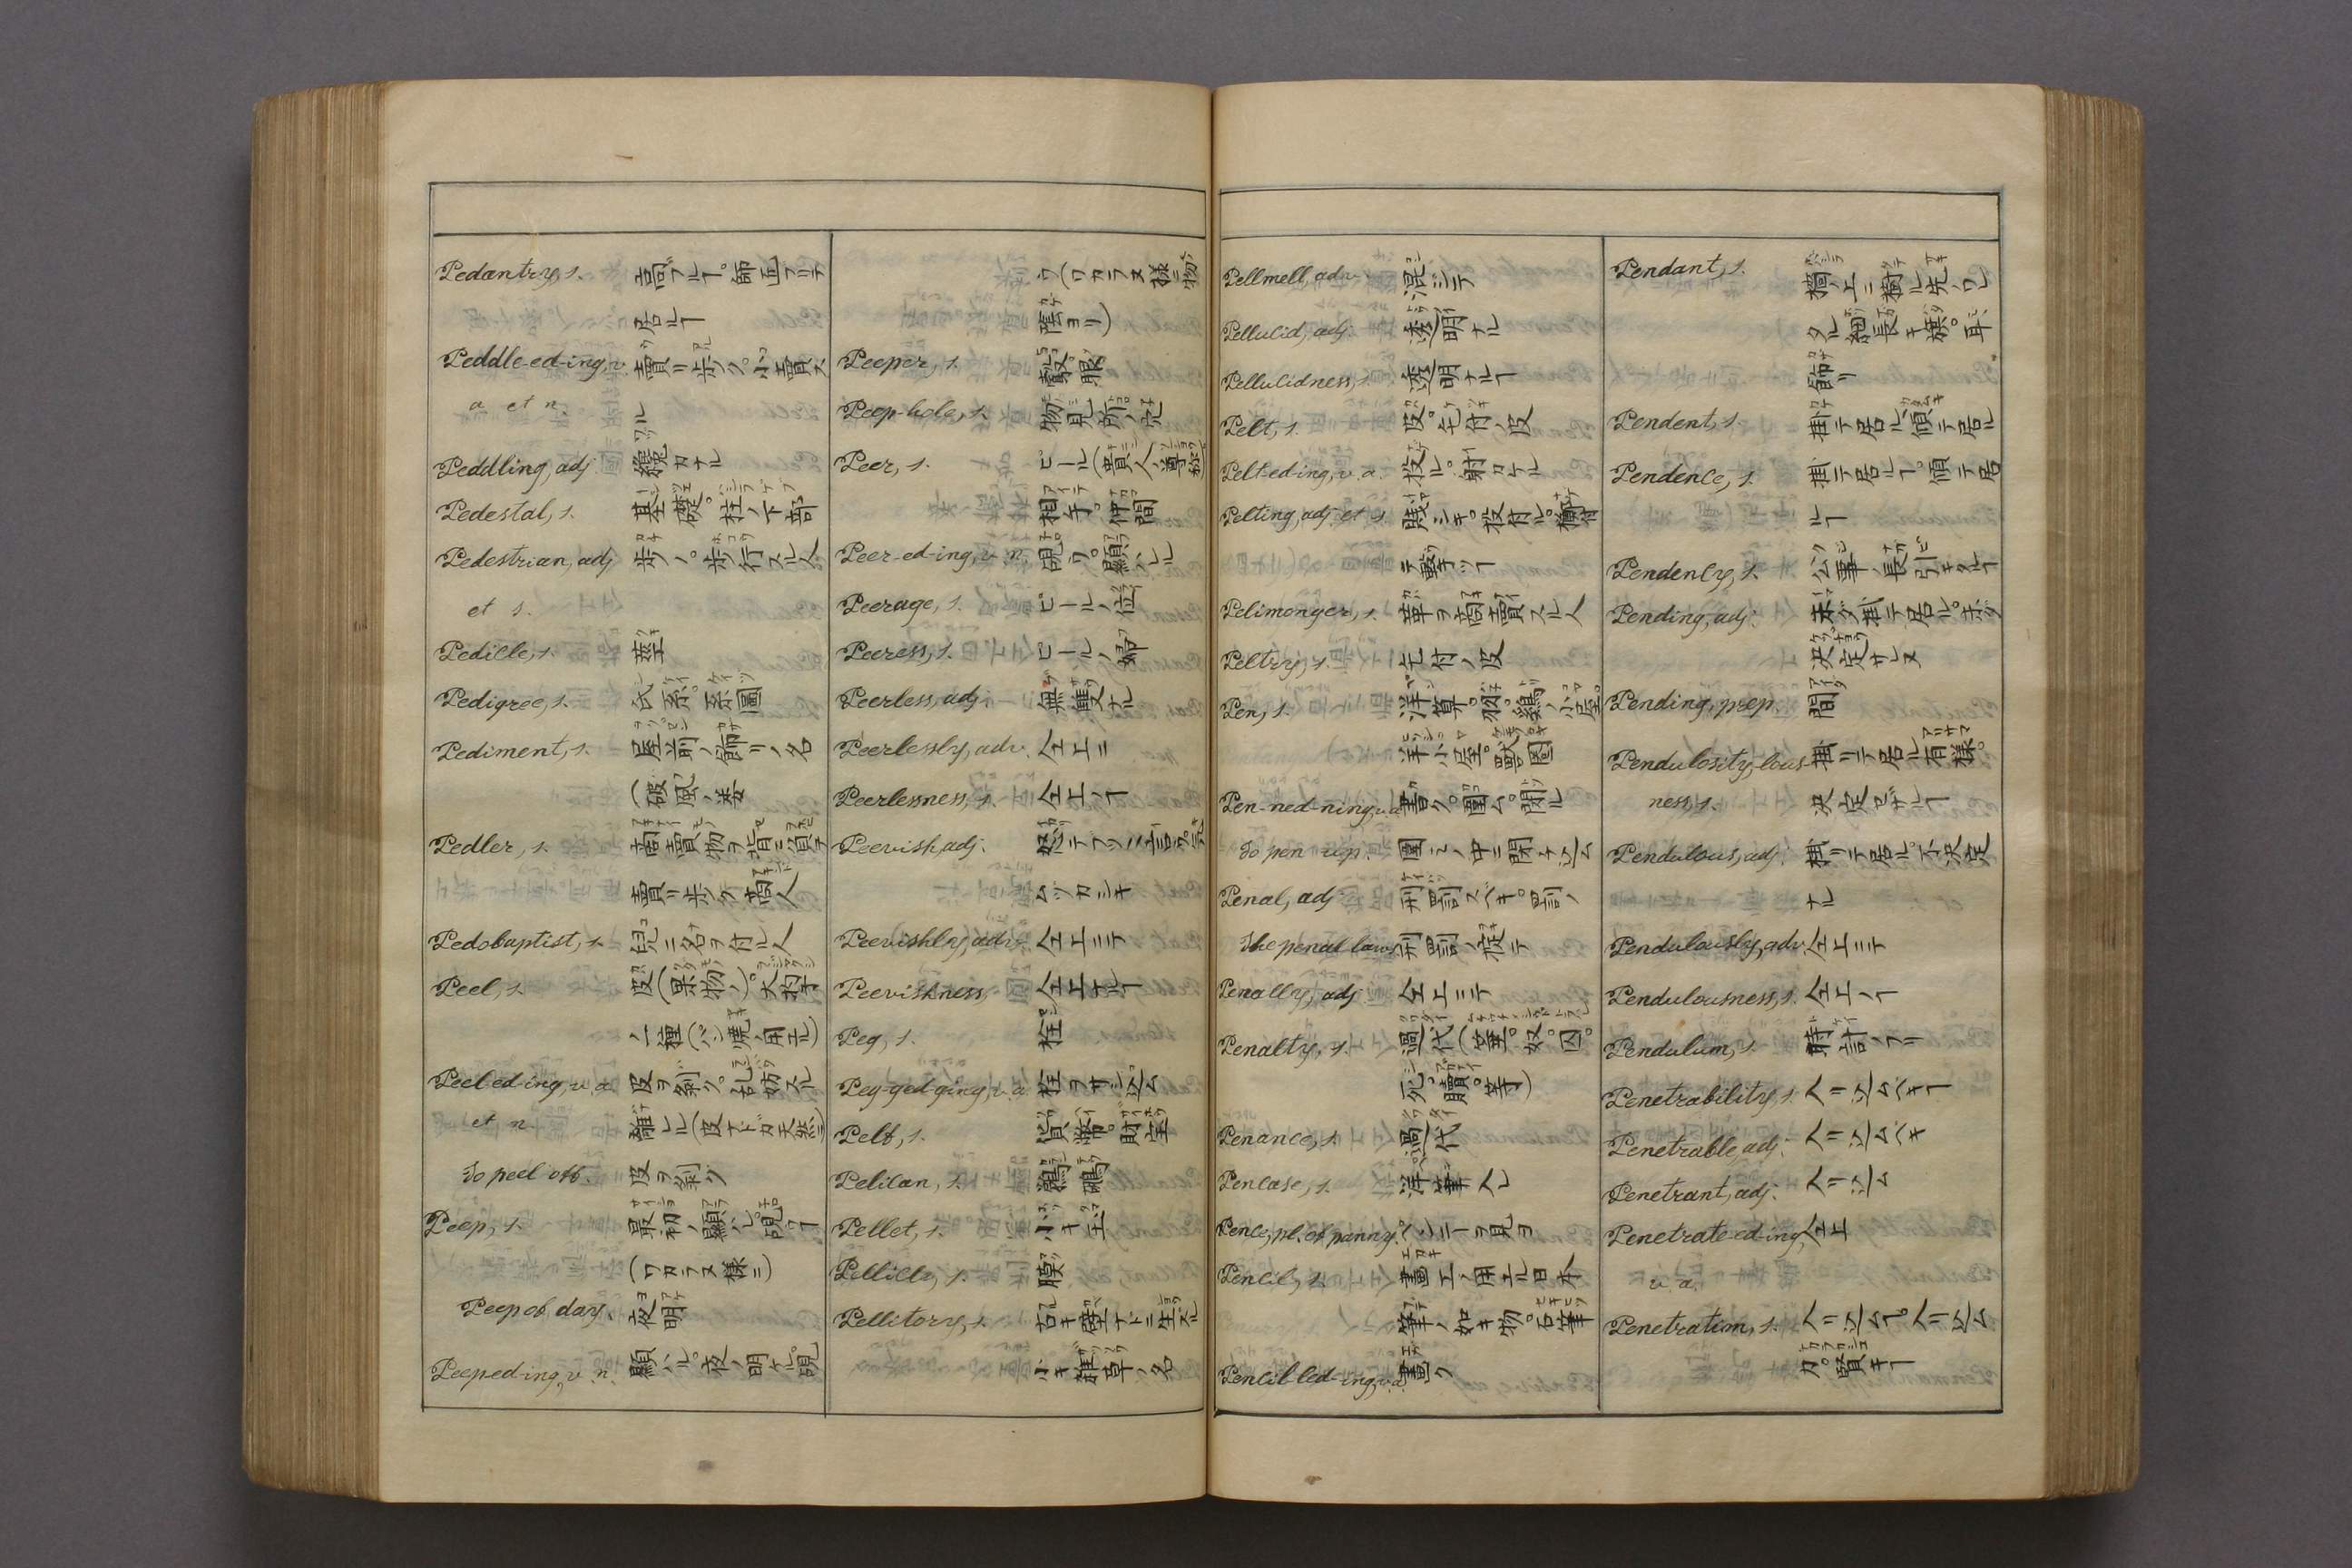 Pedantry, s. 高ブルヿ。師匠ブルテ
居ルヿ
Peddle-ed-ing, v. 賣リ歩ク。小賣ス
a. et n. ル
Peddling, adj 纔カナル
Pedestal, s. 基礎。柱ノ下部
Pedestrian, adj 歩ノ。歩行スル人
et s.
Pedicle, s. 莖
Pedigree, s. 氏系。系圖
Pediment, s. 屋前ノ飾リノ名
(破風ノ類
Pedler, s. 商賣物ヲ背ニ負テ
賣リ歩ク商人
Pedobaptist, s. 兒ニ名ヲ付ル人
Peel, s. 皮(果物ノ)。大杓子
ノ一種(パン燒ノ用ユル)
Peel-ed-ing, v. a. 皮ヲ剝ク。乱妨スル
et n. 離レル(皮ナドガ天然)
To peel off. 皮ヲ剝ク
Peep, s. 最初ノ顯ハレ。覗クヿ
(ワカラヌ樣ニ)
Peep of day. 夜明
Peep-ed-ing, v. n. 顯ハル。夜ノ明ケル。覗
ク(ワカラヌ樣ニ物
陰ヨリ)
Peeper, s. 雛。眼
Peep-hole, s. 物見所ノ穴
Peer, s. ピール(貴人ノ尊称)
相手。仲間
Peer-ed-ing, v. n. 覗ク。顯ハレル
Peerage, s. ピールノ位
Peeress, s. ピールノ婦
Peerless, adj. 無雙ナル
Peerlessly, adv. 仝上ニ
Peerlessness, s. 仝上ノヿ
Peevish, adj. 怒テブツ〱言フ。气
ムツカシキ
Peevishly, adv. 仝上ニテ
Peevishness, 仝上ナルヿ
Peg, s. 栓
Peg-ged-ging, v. a. 栓ヲサシ込ム
Pelf, s. 貨幣。財宝
Pelican, s. 鵜鶘
Pellet, s. 小キ玉
Pellicle, s. 膜
Pellitory, s. 古キ壁ナドニ生ズル
小キ雜草ノ名
Pellmell, adv. 混シテ
Pellucid, adj. 透明ナル
Pellucidness, s. 透明ナルヿ
Pelt, s. 皮。毛付ノ皮
Pelt-ed-ing, v. a. 投ル。射カケル
Pelting, adj. et s. 賤シキ。投付ル。擲付
テ撃ツヿ
Peltmonger, s. 革ヲ商賣スル人
Peltry, s. 毛付ノ皮
Pen, s. 洋筆。羽。鷄ノ小屋。
羊小屋。獸圈
Pen-ned-ning, v. a. 書ク。圍ム。閉ル
To pen up. 圍ミノ中ニ閉チ込ム
Penal, adj. 刑罰スベキ。罰ノ
The penal laws 刑罰ノ掟テ
Penally, adj 仝上ニテ
Penalty, s. 過代(笞。奴。囚。
死。贖。等)
Penance, s. 過代
Pencase, s. 洋筆入レ
Pence, pl. of penny. ペンニーヲ見ヨ
Pencil, s. 畵工ノ用ユル日本
筆ノ如キ物。石筆
Pencil-led-ing, v. a. 畫ク
Pendant, s. 檣ノ上ニ樹ル先ノワレ
タル細長キ旗。耳
飾リ
Pendent, s. 掛テ居ル。傾テ居ル
Pendence, s. 掛テ居ルヿ。傾テ居
ルヿ
Pendency, s. 公事ノ長引キタルヿ
Pending, adj. 未ダ掛テ居ル。未ダ
決定サレヌ
Pending, prep. 間
Pendulosity, lous- 掛リテ居ル有樣。
ness, s. 決定セザルヿ
Pendulous, adj. 掛リテ居ル。不決定
ナル
Pendulously, adv. 仝上ニテ
Pendulousness, s. 仝上ノヿ
Pendulum, s. 時計ノフリ
Penetrability, s. 入リ込ムベキヿ
Penetrable, adj. 入リ込ムベキ
Penetrant, adj. 入リ込ム
Penetrate-ed-ing, 仝上
v. a.
Penetration, s. 入リ込ムヿ。入リ込ム
力。賢キヿ